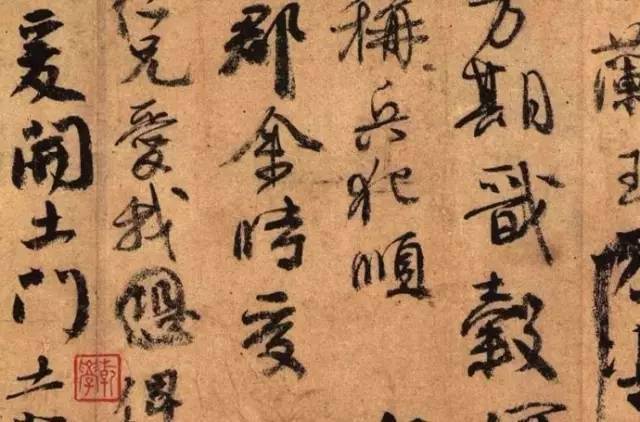 蘭玉
方期戩穀何
稱兵犯順
郡余時受
仁兄愛我恐俾
爰開土門土
乾學